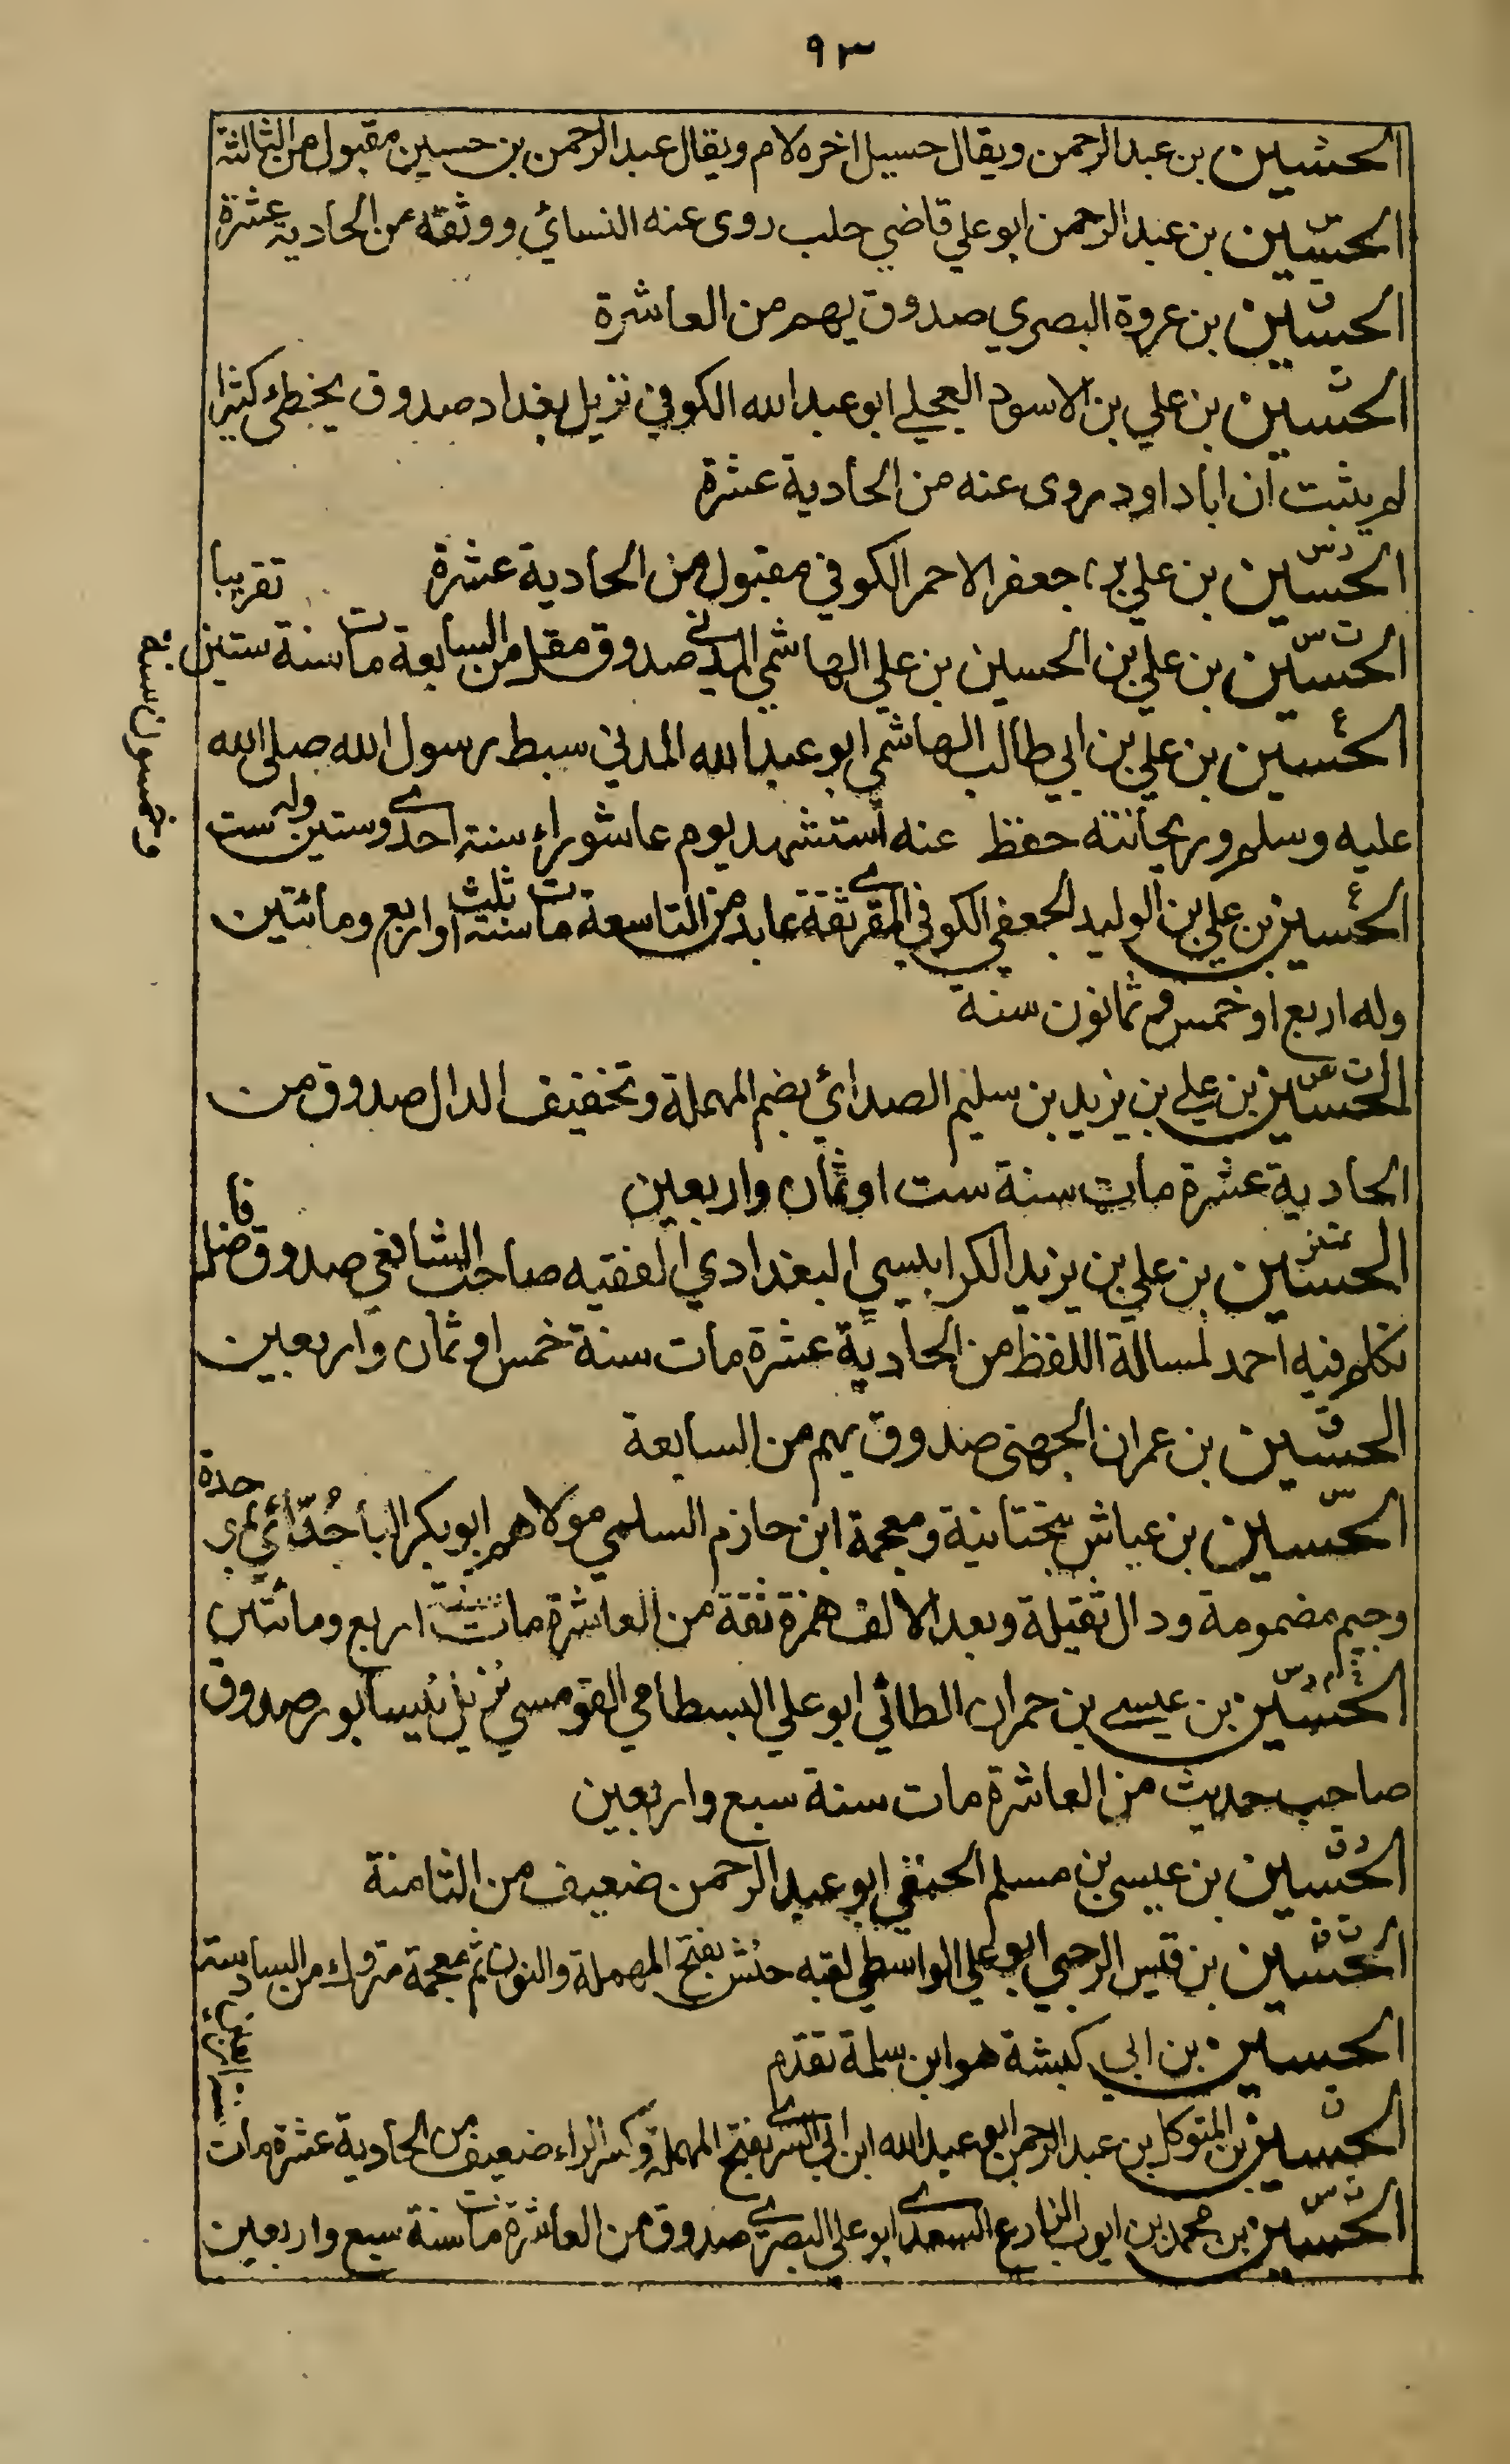 ٩٣
الحسين بن عبد الرحمن ويقال حسيل اخره لام ويقال عبد الرحمن بن حسين مقبول من الثالثة
س
الحسين بن عبد الرحمن ابو علي قاضي حلب روى عنه النسائي ووثقه من الحادية عشرة
ق
الحسين بن عروة البصري صدوق يهم من العاشرة
ت
الحسين بن علي بن الاسود العجلي ابو عبد الله الكوفي نزيل بغداد صدوق يخطئ كثيرا
لم يثبت ان ابا داود روى عنه من الحادية عشرة
د س
الحسين بن علي بن جعفر الاحمر الكوفي مقبول من الحادية عشرة
تقريبا
ت س
الحسين بن علي بن الحسين بن علي الهاشمي المدني صدوق مقل من السابعة مات سنة ستين
ع
الحسين بن علي بن ابي طالب الهاشمي ابو عبد الله المدني سبط رسول الله صلى الله
عليه وسلم وريحانته حفظ عنه استشهد يوم عاشوراء سنة احدى وستين وله ست
وخمسون سنة
ع
الحسين بن علي بن الوليد الجعفي الكوفي المقرئ ثقة عابد من التاسعة مات سنة ثلث او اربع ومائتين
وله اربع او خمس وثمانون سنة
ت عس
الحسين بن علي بن يزيد بن سليم الصدائي بضم المهملة وتخفيف الدال صدوق من
الحادية عشرة مات سنة ست او ثمان واربعين
تمييز
الحسين بن علي بن يزيد الكرابيسي البغدادي الفقيه صاحب الشافعي صدوق فاضل
تكلم فيه احمد لمسالة اللفظ من الحادية عشرة مات سنة خمس او ثمان واربعين
ق
الحسين بن عمران الجهني صدوق يهم من السابعة
س
الحسين بن عياش بتحتانية ومعجمة ابن حازم السلمي مولاهم ابو بكر الباجُدّائي بموحدة
وجيم مضمومة ودال ثقيلة وبعد الالف همزة ثقة من العاشرة مات سنة اربع ومائتين
خ م د س
الحسين بن عيسى بن حمران الطائي ابو علي البسطامي القومسي نزيل نيسابور صدوق
صاحب حديث من العاشرة مات سنة سبع واربعين
د ق
الحسين بن عيسى بن مسلم الحنفي ابو عبد الرحمن ضعيف من الثامنة
ت ق
الحسين بن قيس الرحبي ابو علي الواسطي لقبه حنش بفتح المهملة والنون ثم معجمة متروك من السادسة
الحسين بن ابي كبشة هو ابن سلمة تقدم
ق
الحسين بن المتوكل بن عبد الرحمن ابو عبد الله ابن ابي السري بفتح المهملة وكسر الراء ضعيف من الحادية عشرة مات
سنة اربعين
ت س
الحسين بن محمد بن ايوب الذارع السعدي ابو علي البصري صدوق من العاشرة مات سنة سبع واربعين